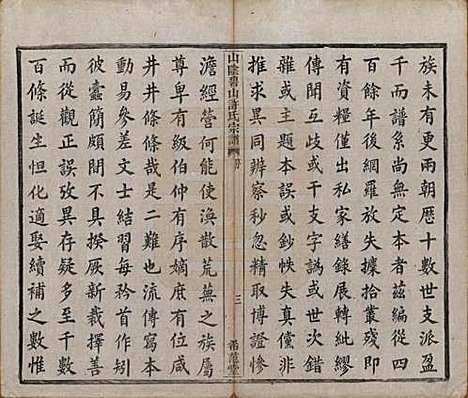 族未有更兩朝歷十數世支派盈
千而譜系尚無定本者茲編從四
百餘年後網羅放失攗拾叢殘即
有資糧僅出私家繕錄展轉紕繆
傳聞互歧或干支字譌或世次錯
雜或主題本誤或鈔帙失真儻非
推求異同辦察秒忽精取博證慘
山陰碧山許氏宗譜
序
三
希范堂
澹經營何能使渙散荒蕪之族屬
尊卑有級伯仲有序嫡庶有位咸
井井條貫是二難也流傳寫本
動易參差文士結習每矜首作矧
彼蠡簡頗不具揆厥新裁擇善
而從觀正誤異存疑多方次其
百條誕生閒化適娶續補之數惟